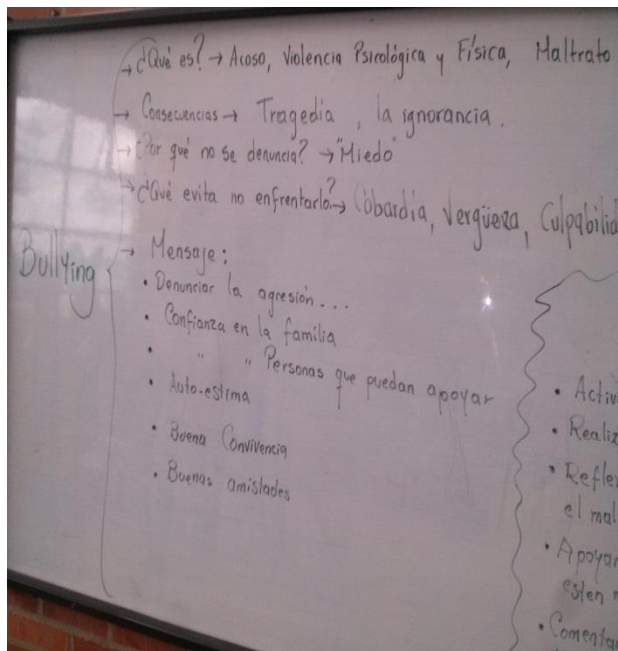 → ¿Qué es? → Acoso, Violencia Psicológica y Física, Maltrato
→ Consecuencias → Tragedia, la ignorancia.
→ ¿Por qué no se denuncia? → "Miedo"
→ ¿Qué evita no enfrentarlo? → Cobardía, Vergüenza, Culpabilid
Bullying
→ Mensaje:
• Denunciar la agresión...
• Confianza en la familia
• " " Personas que puedan apoyar
• Auto-estima
• Buena Convivencia
• Buenas amistades
• Activ
• Realiz
• Refle
el mal
• Apoyar
esten
• Comenta